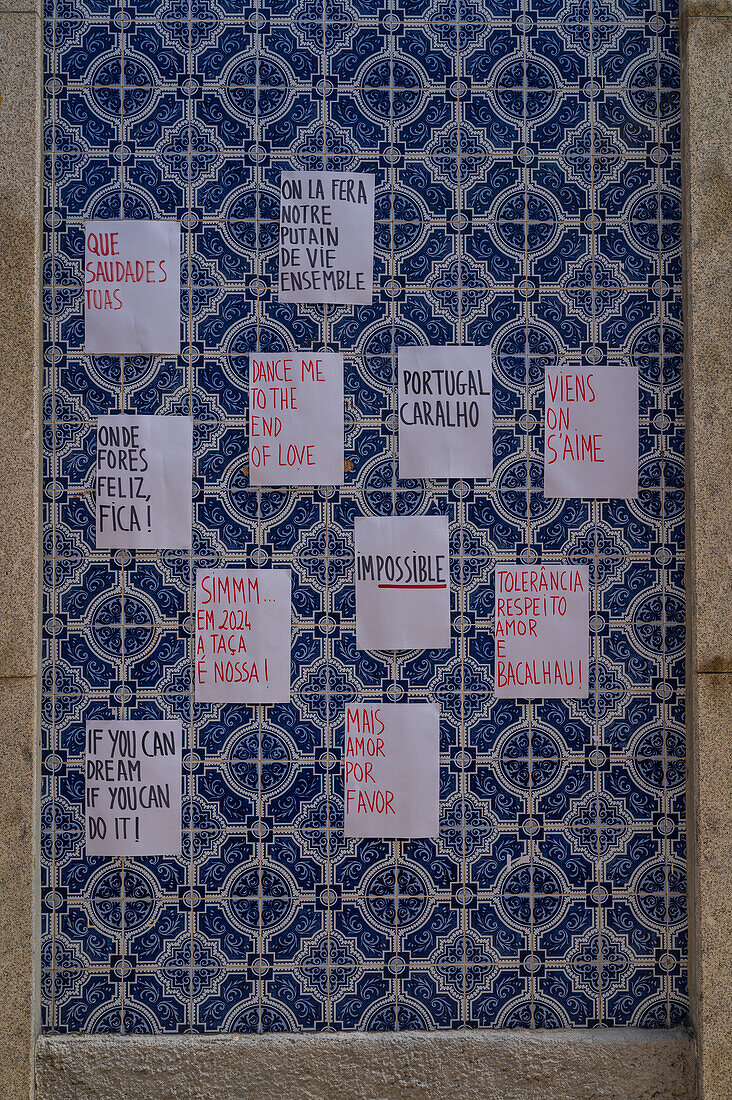 ON LA FERA
NOTRE
PUTAIN
DE VIE
ENSEMBLE
QUE
SAUDADES
TUAS
DANCE ME
TO THE
END
OF LOVE
PORTUGAL
CARALHO
VIENS
ON
S'AIME
ONDE
FORES
FELIZ,
FICA!
IMPOSSIBLE
SIMMM...
EM 2024
A TAÇA
É NOSSA!
TOLERÂNCIA
RESPEITO
AMOR
E
BACALHAU!
MAIS
AMOR
POR
FAVOR
IF YOU CAN
DREAM
IF YOU CAN
DO IT!